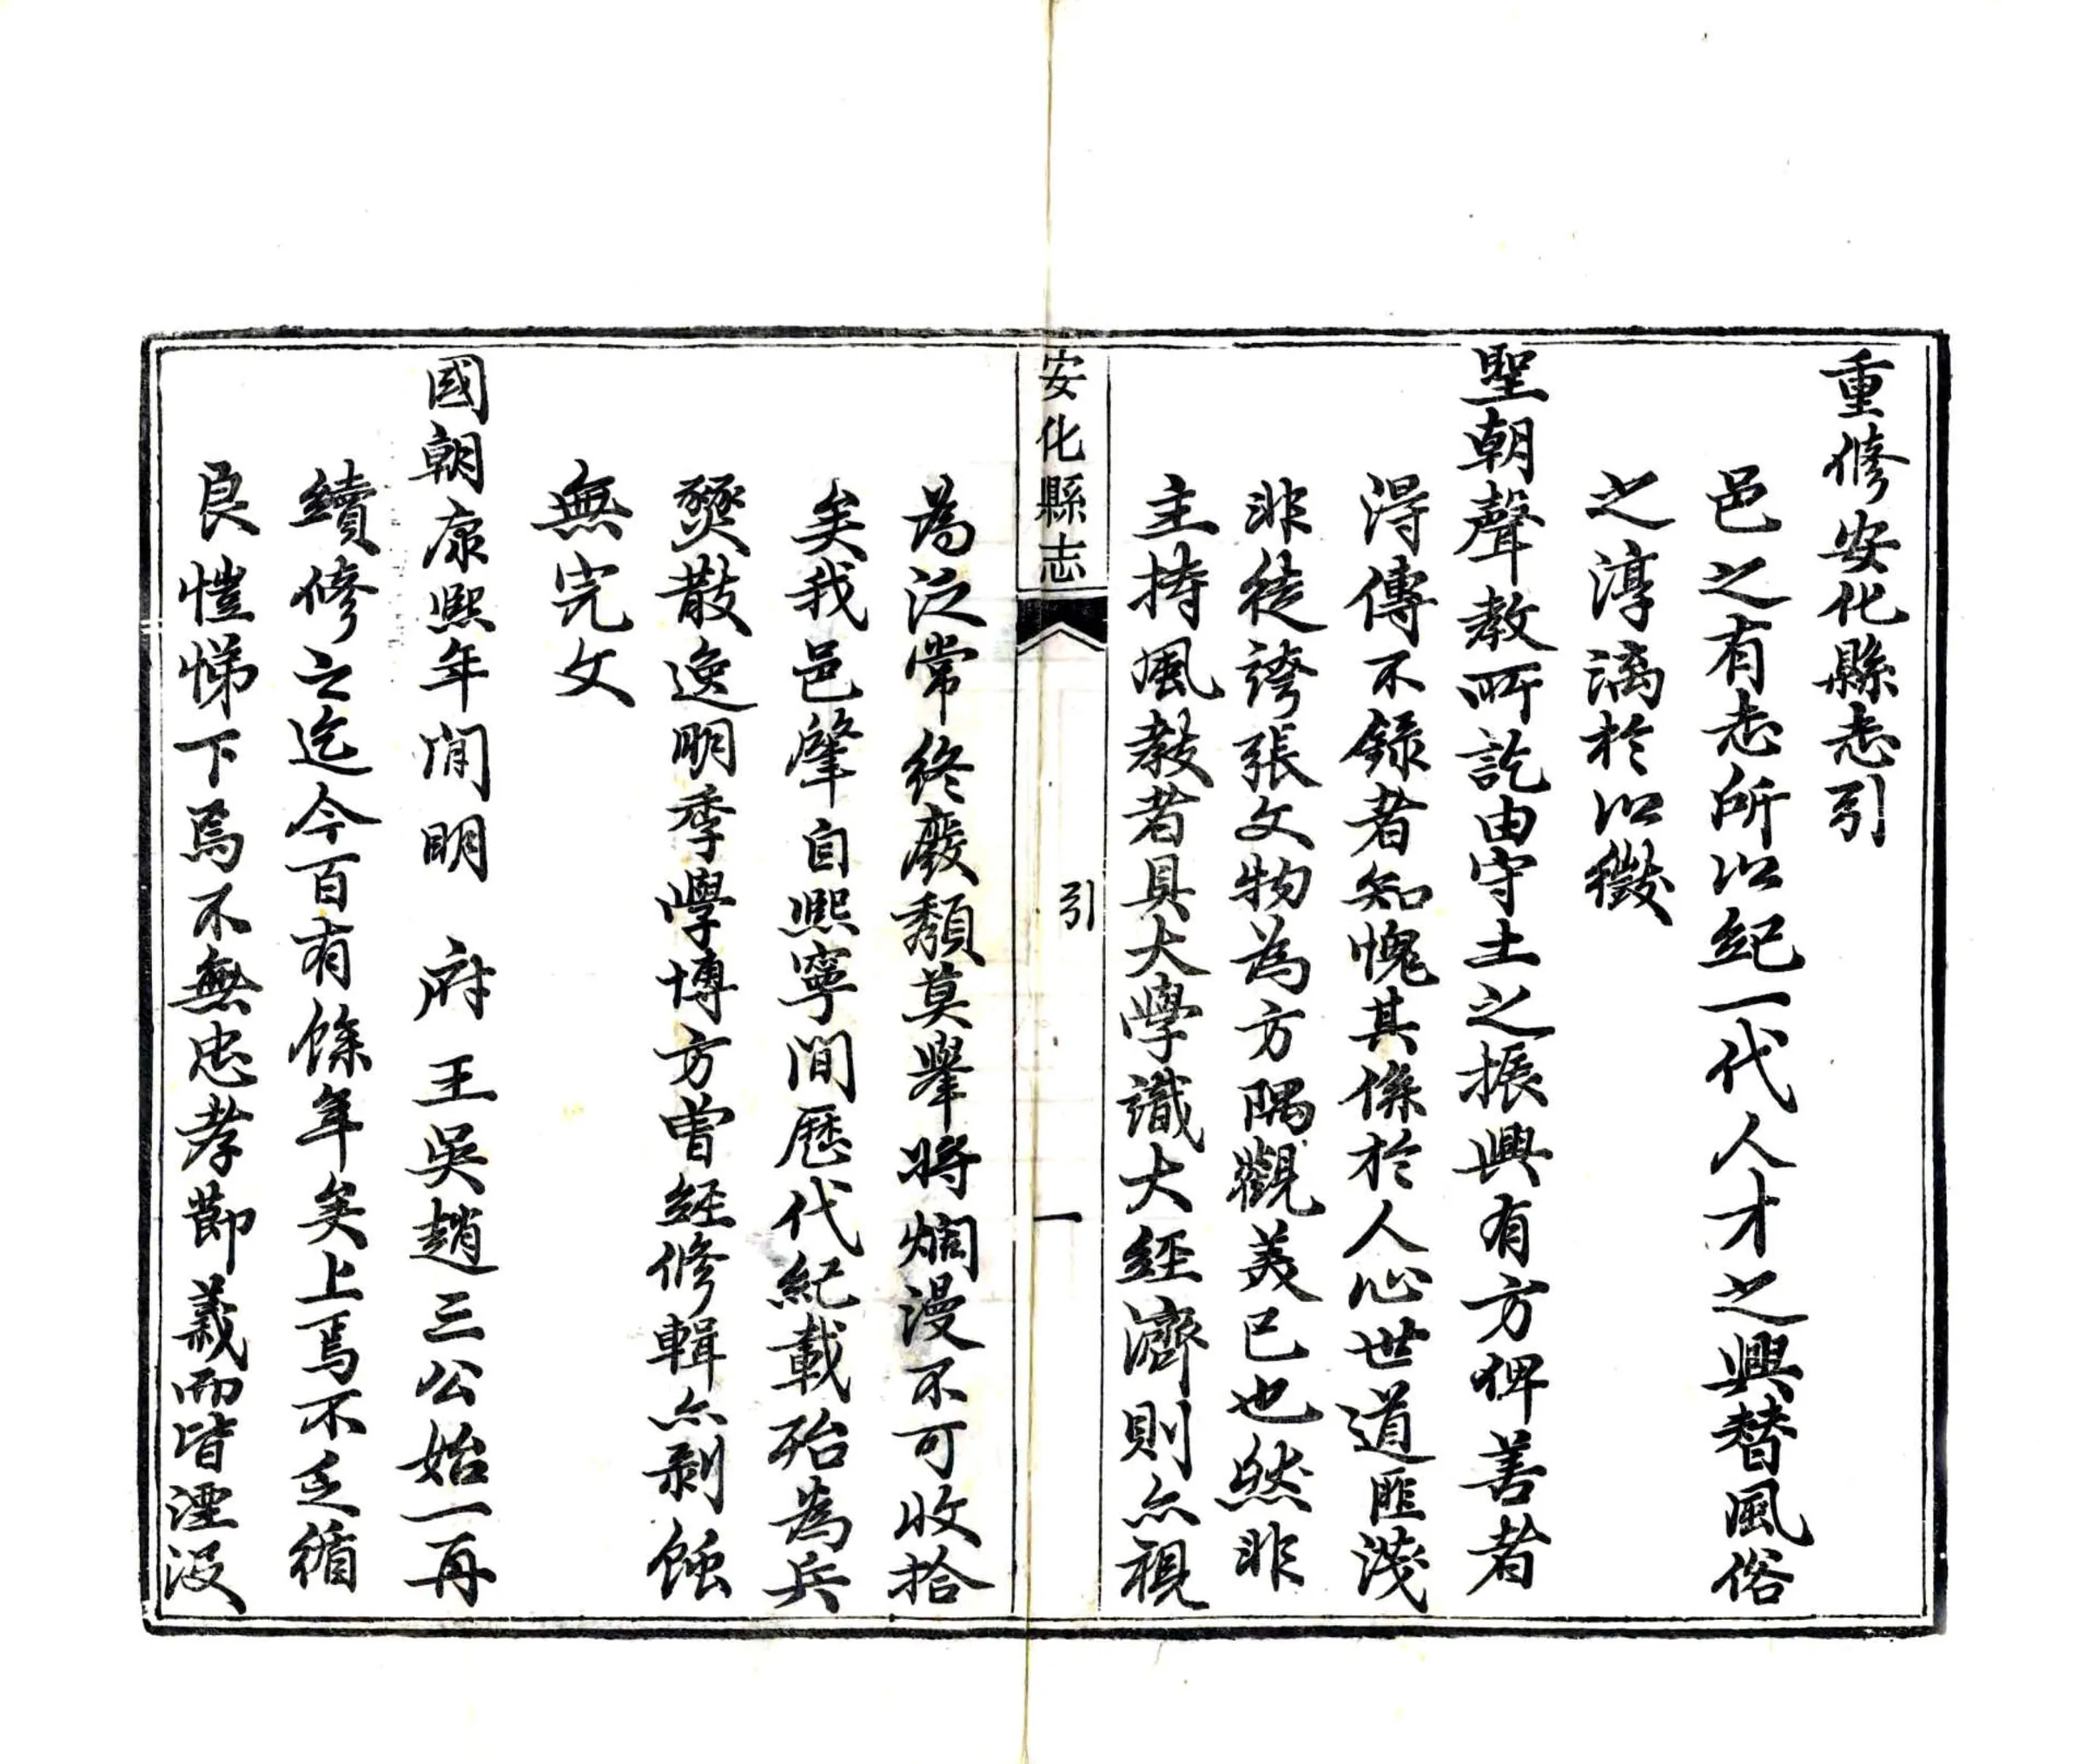 重修安化縣志引
邑之有志所以紀一代人才之興替風俗
之淳漓於以徵
聖朝聲教所訖由守土之振興有方俾善者
得傳不錄者知愧其係於人心世道匪淺
非徒誇張文物為方隅觀美已也然非
主持風教者具大學識大經濟則亦視
安化縣志
引
一
為泛常終廢頹莫舉將爛漫不可收拾
矣我邑肇自熙寧間歷代紀載殆為兵
燹散逸明季學博方曾經修輯亦剥蝕
無完文
國朝康熙年間明 府王吳趙三公始一再
續修之迄今百有餘年矣上焉不乏循
良愷悌下焉不無忠孝節義而皆湮没